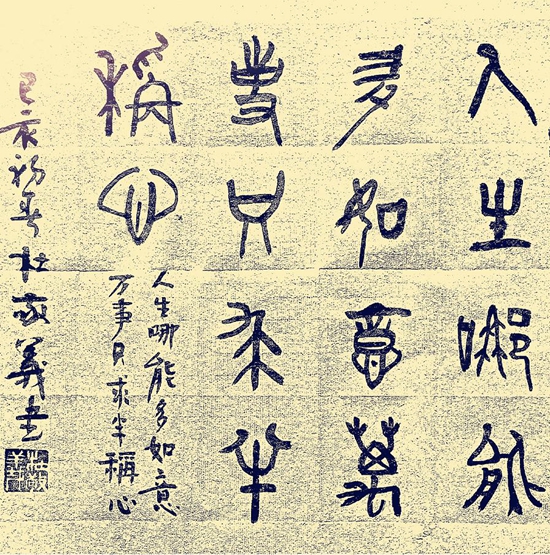 人生哪能
多如意萬
事只求半
稱心
人生哪能多如意
万事只求半稱心
己亥初春杜敬義书